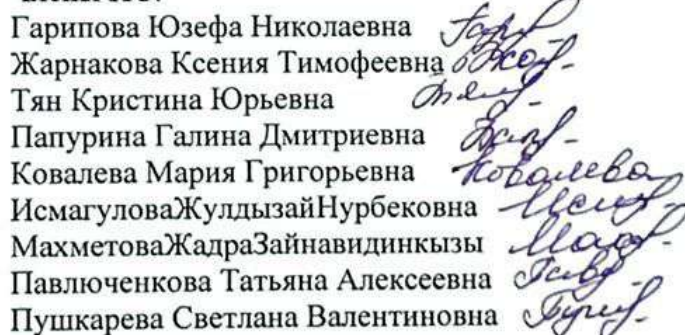 Гарипова Юзефа Николаевна
Жарнакова Ксения Тимофеевна
Тян Кристина Юрьевна
Папурина Галина Дмитриевна
Ковалева Мария Григорьевна Ковалева
ИсмагуловаЖулдызайНурбековна
МахметоваЖадраЗайнавидинкызы
Павлюченкова Татьяна Алексеевна
Пушкарева Светлана Валентиновна